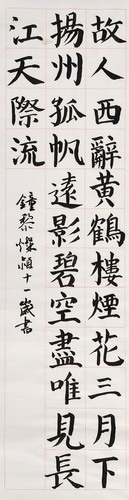 故人西辭黃鶴樓煙花三月下
揚州孤帆遠影碧空盡唯見長
江天際流
鐘黎燦穎十一歲書